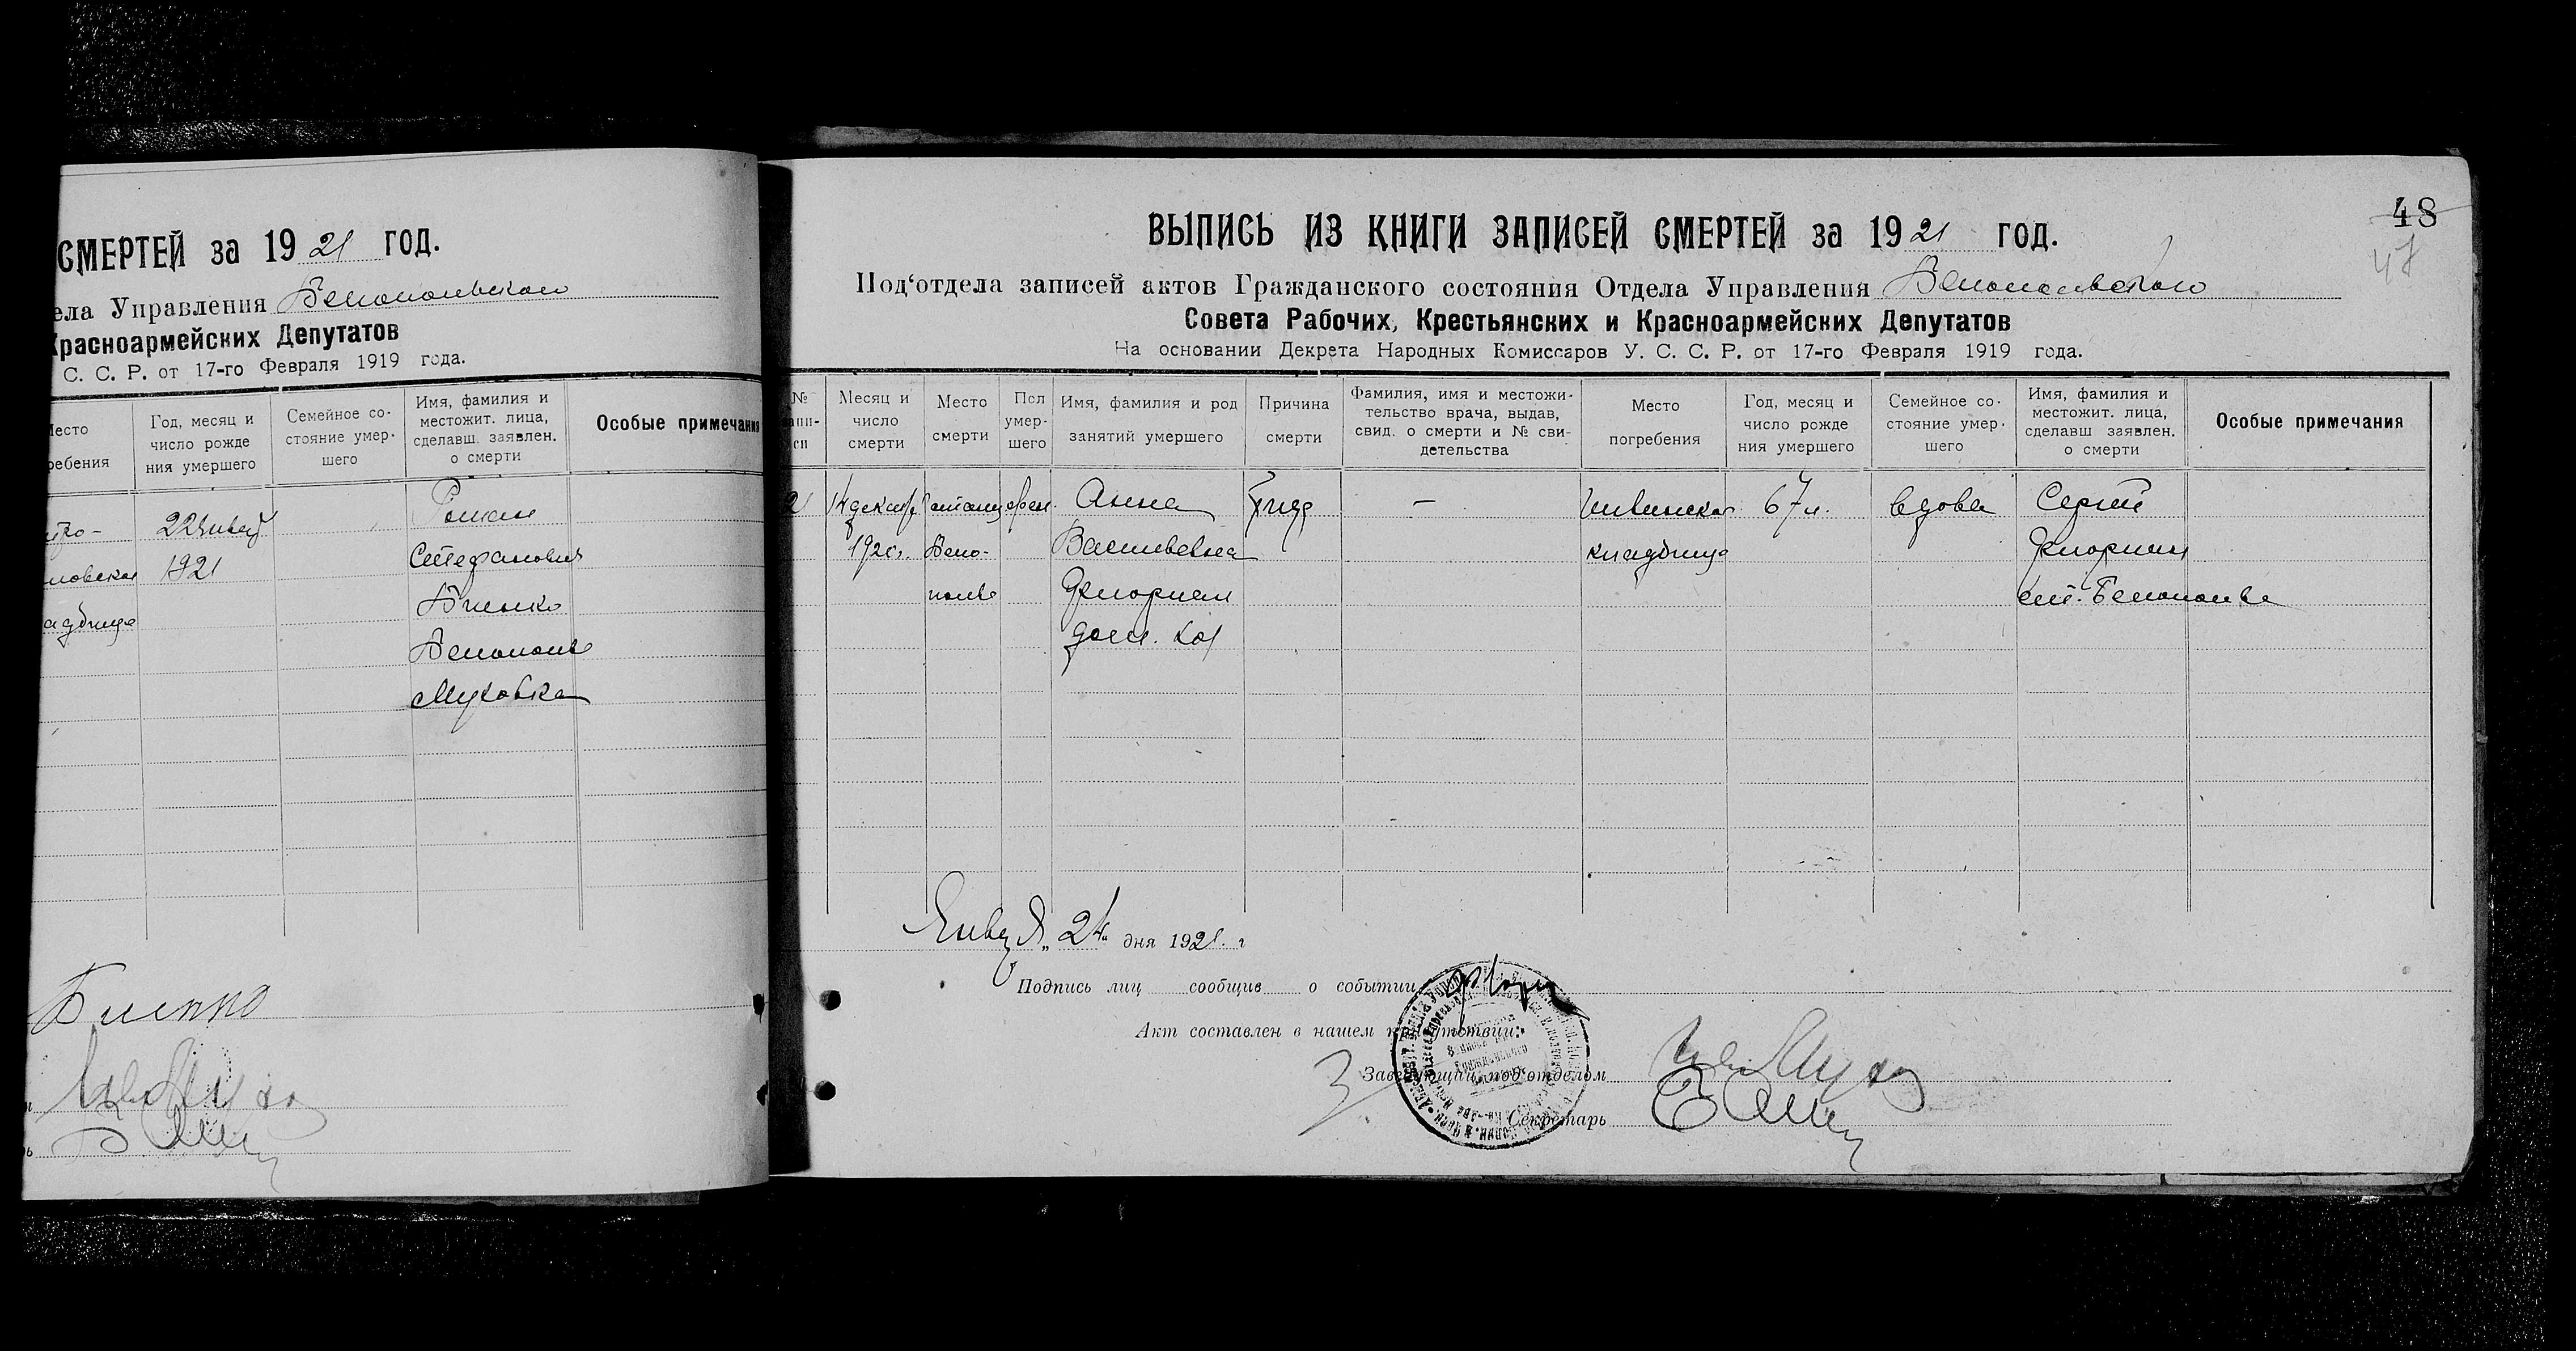 СМЕРТЕЙ за 1921 год.
ела Управления Белопольского
Красноармейских Депутатов
С. С. Р. от 17-го Февраля 1919 года.
Место
ребения
Год, месяц и
число рожде
ния умершего
Семейное со-
стояние умер-
шего
Имя, фамилия и
местожит. лица,
сделавш. заявлен.
о смерти
Особые примечания
22 Январ
1921
Роман
Стефанович
Биенко
Белополье
Муховка
адбище
Биенко
48
47
ВЫПИСЬ ИЗ КНИГИ ЗАПИСЕЙ СМЕРТЕЙ за 1921 год.
Под‘отдела записей актов Гражданского состояния Отдела Управления Белопольского
Совета Рабочих, Крестьянских и Красноармейских Депутатов
На основании Декрета Народных Комиссаров У. С. С. Р. от 17-го Февраля 1919 года.
№
апи-
си
Месяц и
число
смерти
Место
смерти
Пол
умер-
шего
Имя, фамилия и род
занятий умершего
Причина
смерти
Фамилия, имя и местожи-
тельство врача, выдав,
свид. о смерти и № сви-
детельства
Место
погребения
Год, месяц и
число рожде
ния умершего
Семейное со-
стояние умер-
шего
Имя, фамилия и
местожит. лица,
сделавш заявлен.
о смерти
Особые примечания
2
14 декаб
1920г.
Бело-
полье
жен.
Анна
Васильевна
Флориан
дом. хоз
—
кладбище
67 л.
вдова
Сергей
Флориан
ст. Белополье
Январ Я „ 24 “ дня 1921. г
Подпись лиц сообщив о событии
Акт составлен в нашем присутствии:
Заведующий под‘отделом
Секретарь